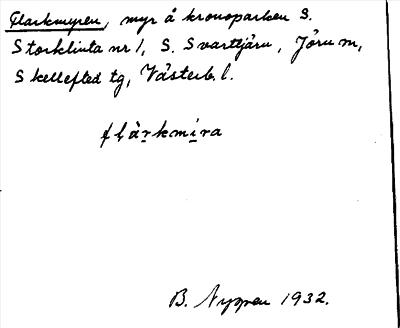 Flarkmyren, myr å kronoparken S.
Storklinta nr 1, S. Svarttjärn, Jörn m,
Skellefteå tg, Västerb. l.
flärkmira
B. Nyppen 1932.